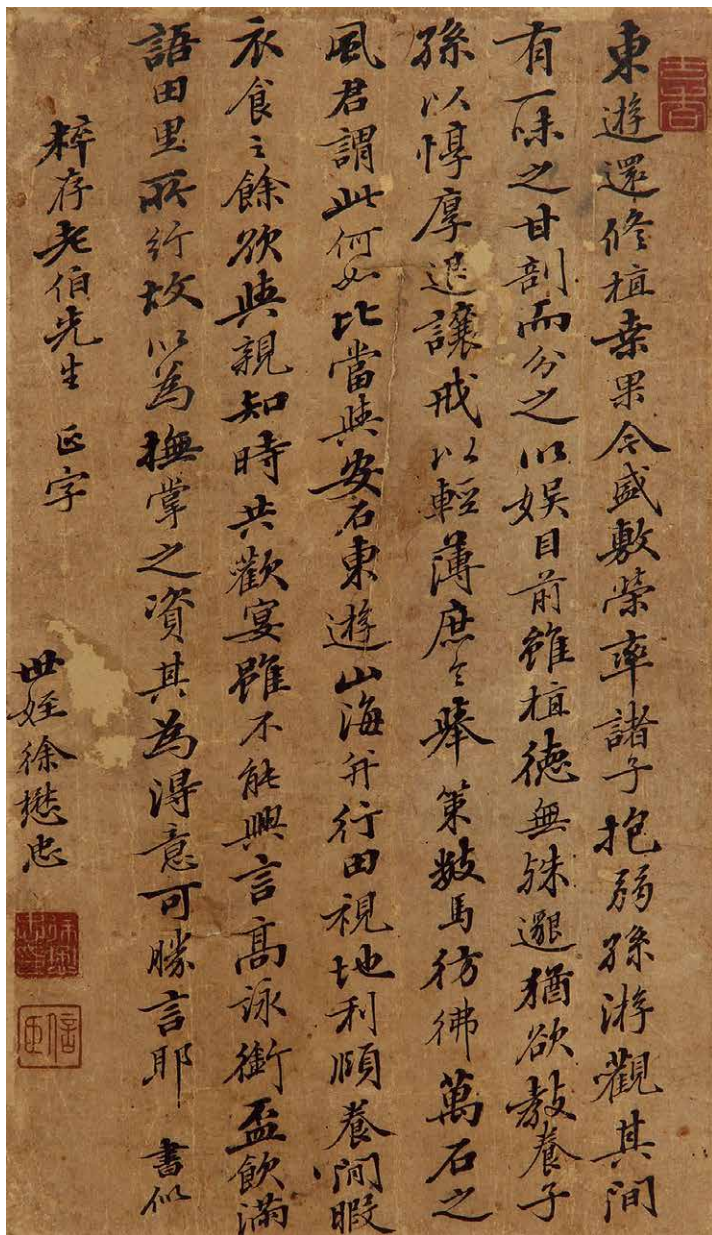 東遊還修植桑果今盛敷榮率諸子抱弱孫游觀其間
有一味之甘剖而分之以娱目前雖植德無殊邈猶欲教養子
孫以惇厚退讓戒以輕薄庶令舉策數馬彷彿萬石之
風君謂此何如比當與安石東遊山海并行田視地利頤養閒暇
衣食之餘欲與親知時共歡宴雖不能興言高詠銜盃飲滿
語田里所行故以為撫掌之資其為得意可勝言耶 書似
梓存老伯先生 正字
世姪徐懋忠